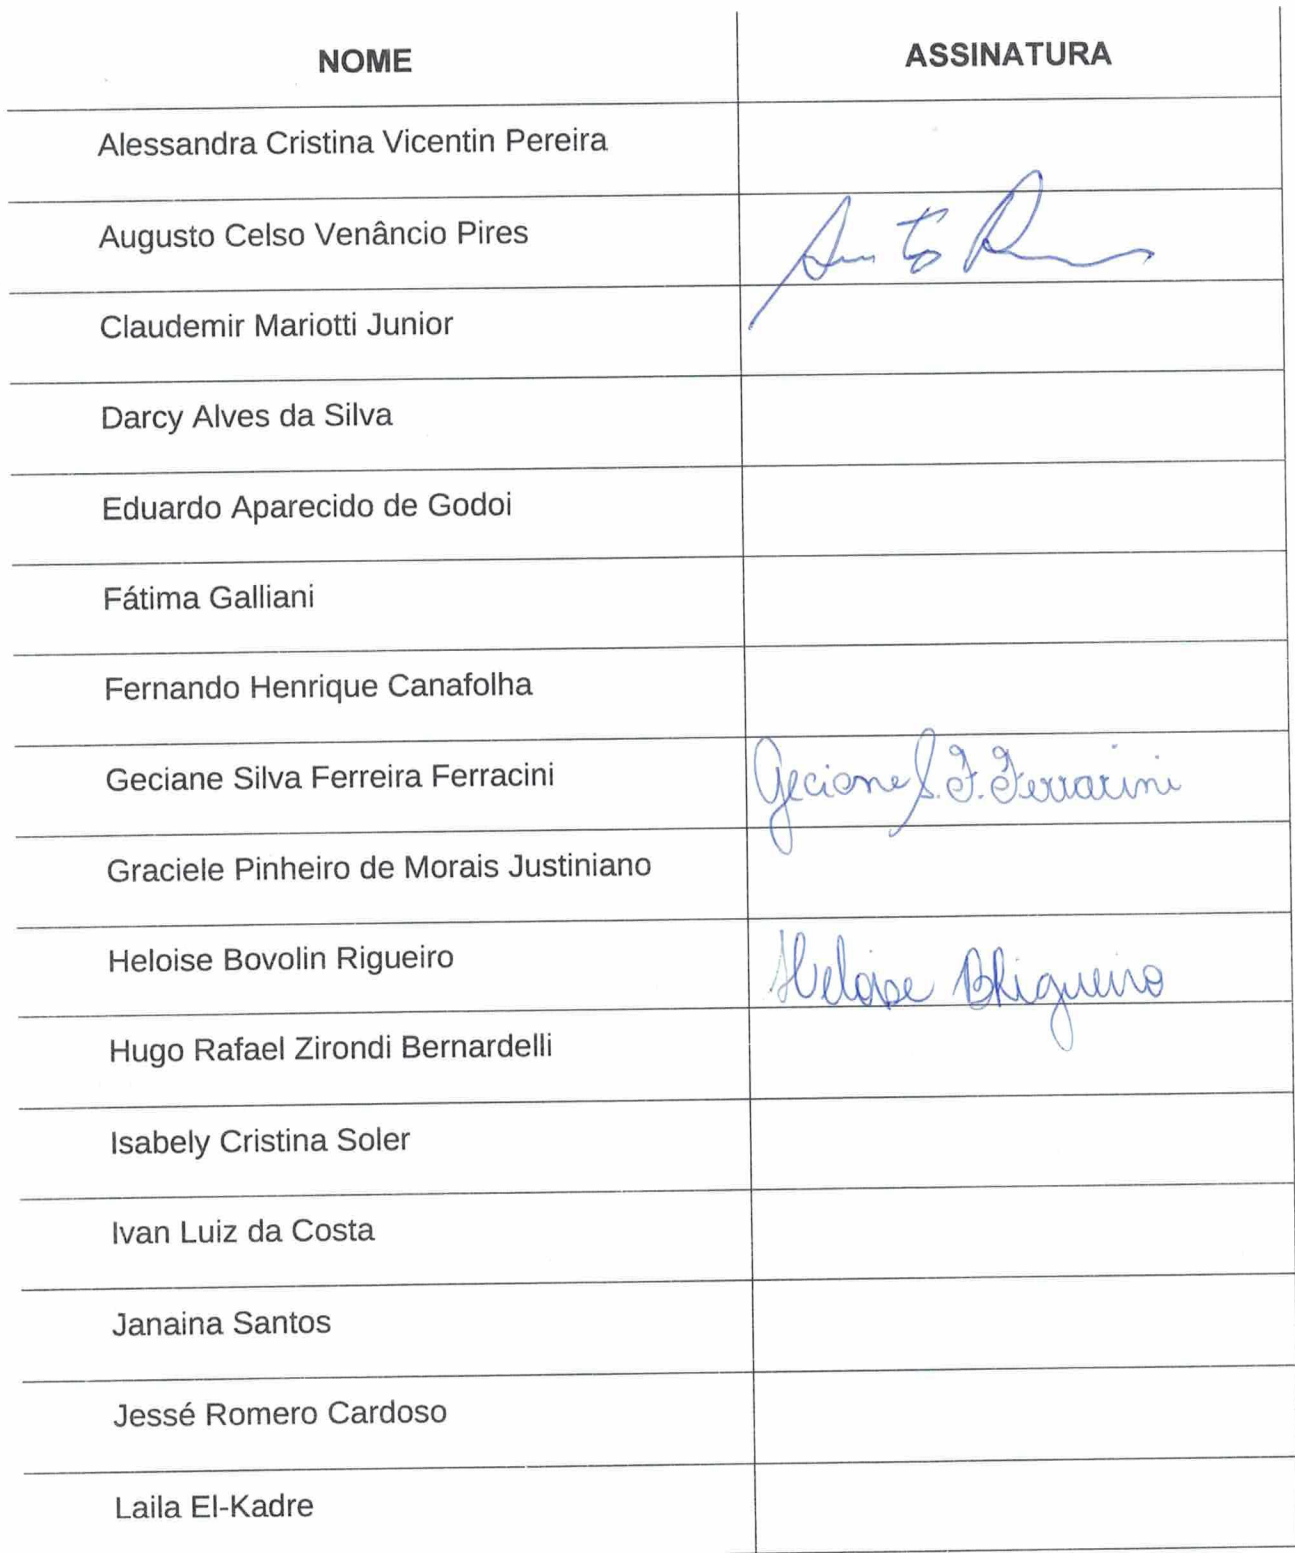 NOME ASSINATURA
Alessandra Cristina Vicentin Pereira
Augusto Celso Venâncio Pires
Claudemir Mariotti Junior
Darcy Alves da Silva
Eduardo Aparecido de Godoi
Fátima Galliani
Fernando Henrique Canafolha
Geciane Silva Ferreira Ferracini Geciane S. F. Ferracini
Graciele Pinheiro de Morais Justiniano
Heloise Bovolin Rigueiro Heloise BRigueiro
Hugo Rafael Zirondi Bernardelli
Isabely Cristina Soler
Ivan Luiz da Costa
Janaina Santos
Jessé Romero Cardoso
Laila El-Kadre